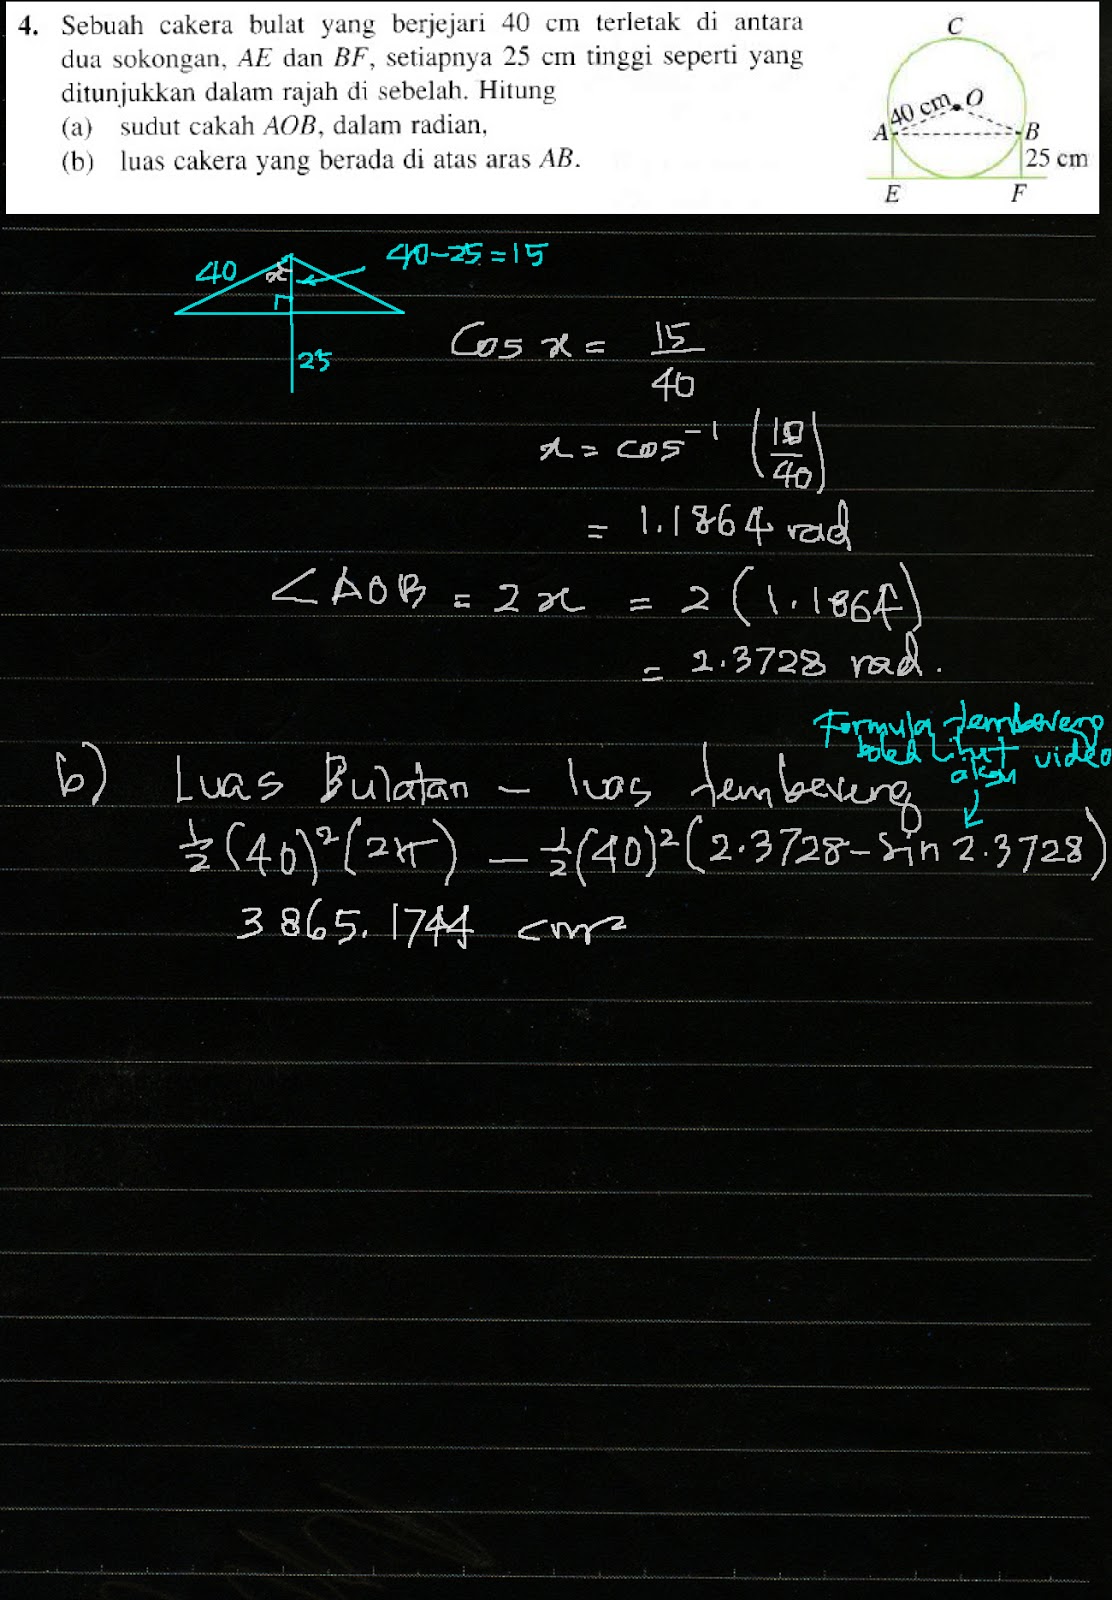 4. Sebuah cakera bulat yang berjejari 40 cm terletak di antara
dua sokongan, AE dan BF, setiapnya 25 cm tinggi seperti yang
ditunjukkan dalam rajah di sebelah. Hitung
(a) sudut cakah AOB, dalam radian,
(b) luas cakera yang berada di atas aras AB.
C
40 cm O
A B
25 cm
E F
40 x 40-25=15
25
Cos x = 15/40
x = cos⁻¹ (15/40)
= 1.1864 rad
∠AOB = 2x = 2(1.1864)
= 2.3728 rad.
Formula tembereng
boleh lihat video
b) Luas Bulatan - luas tembereng
½(40)²(2π) - ½(40)²(2.3728-sin 2.3728)
3865.1744 cm²